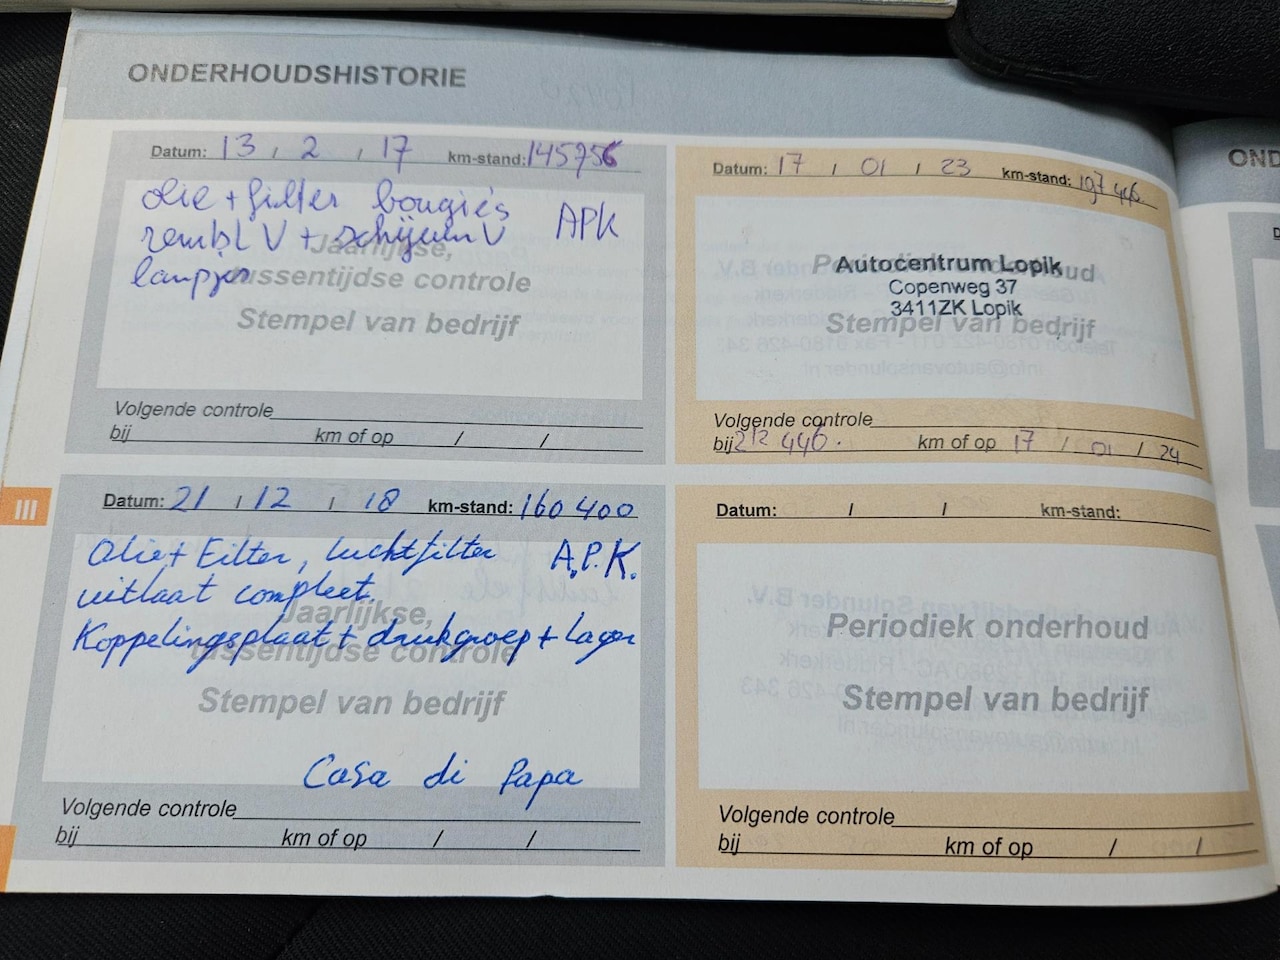 ONDERHOUDSHISTORIE
Datum: 13 / 2 / 17 km-stand: 145756
Olie + filter bougies APK
rembl V + schijven V
lampjes
Jaarlijkse,
tussentijdse controle
Stempel van bedrijf
Volgende controle
bij km of op / /
Datum: 17 / 01 / 23 km-stand: 197 446
Periodiek onderhoud
Autocentrum Lopik
Copenweg 37
3411ZK Lopik
Stempel van bedrijf
Volgende controle
bij 212 446. km of op 17 / 01 / 24
III
Datum: 21 / 12 / 18 km-stand: 160 400
Olie + Filter, luchtfilter A.P.K.
uitlaat compleet.
Koppelingsplaat + drukgroep + lager
Jaarlijkse,
tussentijdse controle
Stempel van bedrijf
Casa di Papa
Volgende controle
bij km of op / /
Datum: / / km-stand:
Periodiek onderhoud
Stempel van bedrijf
Volgende controle
bij km of op / /
OND